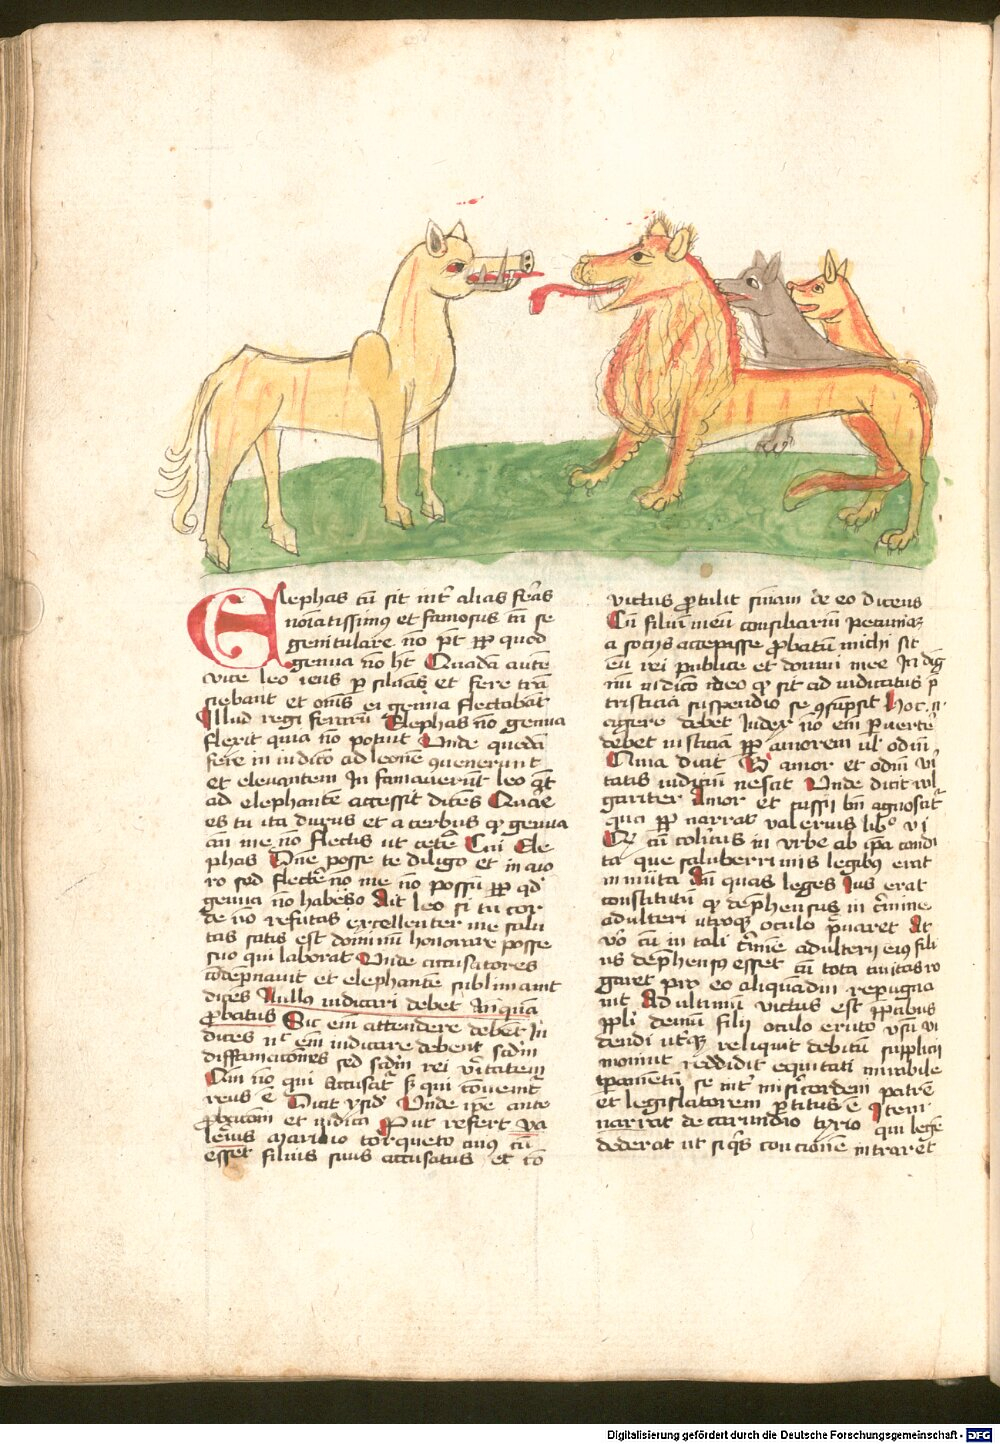 Elephas cu̅ sit int̕ alias feras
noiatissimus et famosus tn̅ se
genitulare no̅ pt̕ pp̅ quod
genua no̅ ht̕ Quada̅ aute̅
vice leo iens p̲ siluas et fere tra̅
siebant et om̅s ei genua flectaba̅t
Illud regi feraru̅ Elephas no̅ genua
flexit quia no̅ potuit Unde queda̅
fere in iudico ad leone̅ quenerunt
et eleuantem In famauerūt leo qt̅
ad elephante̅ accessit dices Quare
es tu ita durus et acerbus qp̲ genua
an̅ me no̅ flectis ut cete̅ Cui Ele
phas Dne posse te diligo et in ao
ro sed flecte̅ no̅ me no̅ possu̅ pp̅ qd̕
genua no habeo Ait leo si tu cor
de no̅ refutas excellenter me salu
tas satis est dominu̅ honorare posse
suo qui laborat Unde accusatores
co̅depnauit et elephante̅ sublimauit
dices Nullus iudicari debet an̅qua̅
p̲batus Sic ei̅ attendere debe̅t In
dices nt̕ em̅ iudicare debent scd̅m
diffamaciones sed scd̅m rei v̕itatem
Cu̅ no̅ qui Accusat̕ s̕ qui co̅uenit̕
reus e̅ Dicit ysid̕ Unde ip̅e ante
p̲bacōm et iudica Put refert va
lerius mario torqueto cuius cu̅
esset filius suus accusatus et co̅
victus p̲tulit s̅niam de eo dicens
Cu̅ filiu̅ meu̅ consiliariu̅ pecunia̅
a socijs accepisse p̲batu̅ michi sit
eu̅ rei publice et domui mee In dig̅
nu̅ iudico ideo qp̲ sit ad iudicatus p̲
tristicia suspendio se 9su̅psit Hoc
agere debet Iudex no̅ em̅ p̲uerte̅
debet iusticia̅ pp̅ amore̅ ul̕ odiu̅
Quia dicit amor et odiu̅ v̕i
tatis iudiciu̅ nescit Unde dicit vul
gariter Amor et bn̅ agnoscat̕
qui pp̅ narrat valerius lib̕o vi
cu̅ in vrbe ab ip̅a condi
ta que saluberrimis legibus erat
in mu̅ita An̅ quas leges Ius erat
constitutu̅ qp̲ dep̲hensus in c̕mine
adulteri utroq̨ oculo p̲uaret At
vo̅ cu̅ in tali c̕mine adulterij eius fili
us dep̲hensus esset cu̅ tota ciuitas ro
garet p̲ eo aliquadiu repugna
uit Ad ultimu̅ victus est p̲cibus
pp̅li demu̅ filij oculo eruto vsu vi
dendi ut̕q̨ reliquit debitu̅ supplicij
modu̅ reddidit equitati mirabile
tp̲amentu̅ se int̕ misericordem patre̅
et legislatorem p̲titus e̅ Item
narrat de carundio tyrio qui lege̅
dederat ut si qs̕ concione̅ intraret
Digitalisierung gefördert durch die Deutsche Forschungsgemeinschaft - DFG